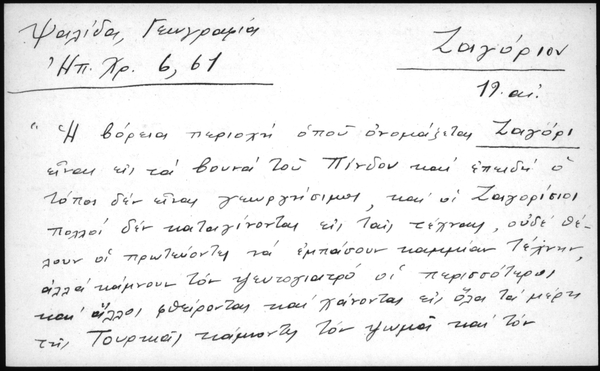 Ψαλίδα, Γεωγραφία
Ἠπ. Χρ. 6, 61
Ζαγόριον
19. αἰ.
"Ἡ βόρεια περιοχή ὁποῦ ὀνομάζεται Ζαγόρι
εἶναι εἰς τά βουνά τοῦ Πίνδου καί ἐπειδή ὁ
τόπος δέν εἶναι γεωργήσιμος, καί οἱ Ζαγορίσιοι
πολλοί δέν καταγίνονται εἰς ταῖς τέχναις, οὐδέ θέ-
λουν οἱ πρωτεύοντες νά ἐμπάσουν καμμίαν τέχνην,
ἀλλά κάμνουν τόν ψευτογιατρό οἱ περισσότεροι
καί ἄλλοι φθείρονται καί χάνονται εἰς ὅλα τά μέρη
τῆς Τουρκιᾶς κάμνοντες τόν ψωμᾶ καί τόν